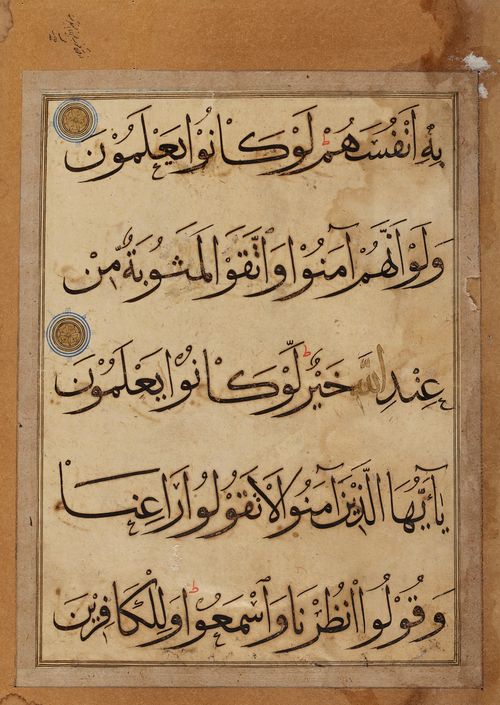 بِهِٓ أَنْفُسَهُمْ لَوْ كَانُوا يَعْلَمُونَ
وَلَوْ أَنَّهُمْ آمَنُوا وَاتَّقَوْا لَمَثُوبَةٌ مِّنْ
عِنْدِ اللَّهِ خَيْرٌ لَّوْ كَانُوا يَعْلَمُونَ
يَا أَيُّهَا الَّذِينَ آمَنُوا لَا تَقُولُوا رَاعِنَا
وَقُولُوا انْظُرْنَا وَاسْمَعُوا وَلِلْكَافِرِينَ